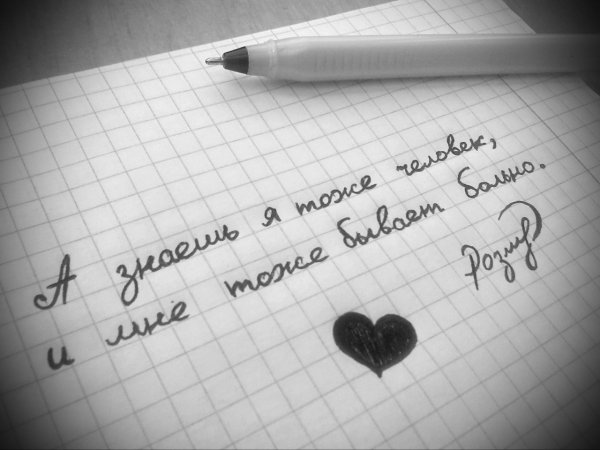 А знаешь я тоже человек,
и мне тоже бывает больно.